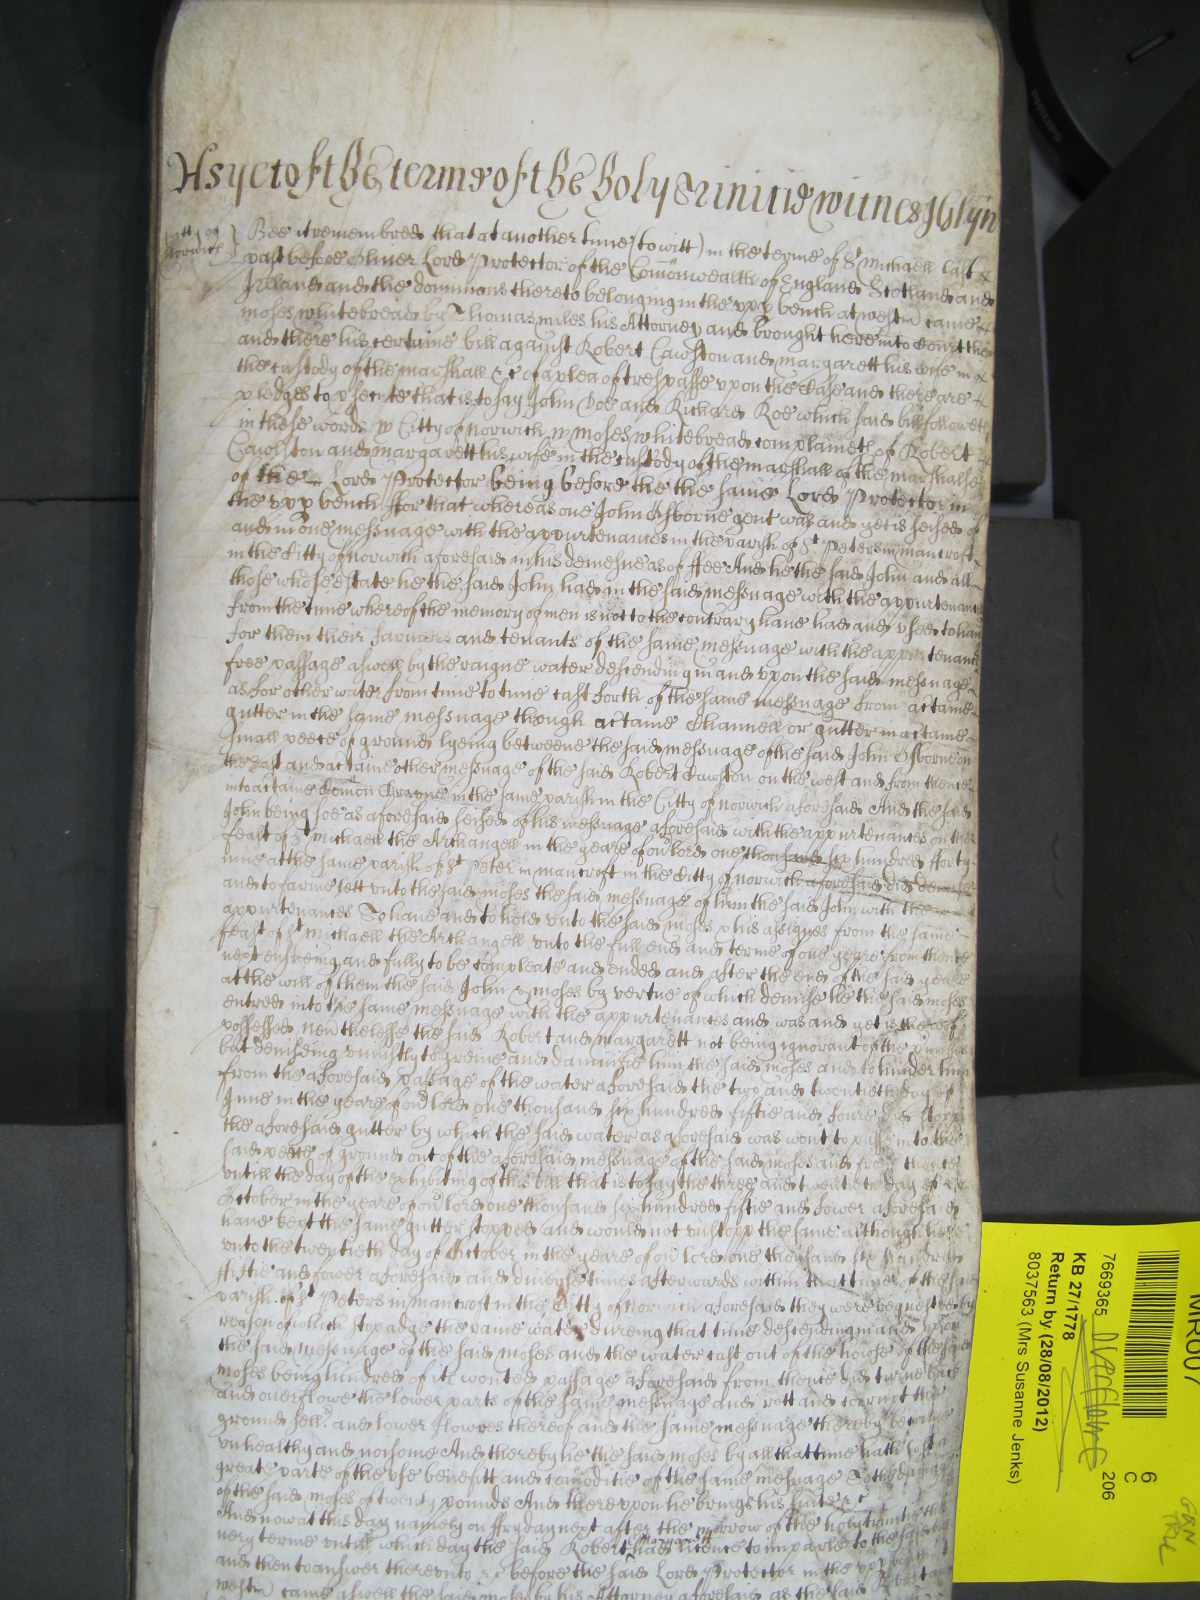 As yet of the terme of the holy Trinitie witnes Jo Glyn
Citty of
Norwich
Bee it remembred that at another time (to witt) in the terme of St Michaell last
past before Oliver Lord Protector of the Comonwealth of England Scotland and
Ireland and the dominions thereto belonging in the upp bench at westm came
moses whitebread by Thomas miles his Attorney and brought here into Court then
and there his certaine bill against Robert Cawston and margarett his wife in
the custody of the marshall &c of a plea of trespasse upon the Case and there are
pledges to psecute that is to say John Doe and Richard Roe which said bill followeth
in these words Citty of Norwich moses whitebread complaineth of Robert
Cawlston and margarett his wife in the custody of the marshall of the marshalsey
of the Lord Protector being before the the same Lord Protector in
the upp bench ffor that whereas one John Osborne gent was and yet is seised of
and in one messuage with the appurtenances in the parish of St Peters in mancroft
in the Citty of norwich aforesaid in his demesne as of ffee And he the said John and all
those whose estate he the said John had in the said messuage with the appurtenances
from the time whereof the memory of men is not to the contrary have had and used to have
for them their farmers and tenants of the same messuage with the appurtenances
free passage aswell by the raigne water descending in and upon the said messuage
as for other water from time to time cast forth of the same messuage from a ctaine
gutter in the same messuage though a ctaine Channell or gutter in a ctaine
small peece of ground lyeing betweene the said messuage of the said John Osborne on
the East and a ctaine other messuage of the said Robert Cawston on the west and from thence
into a ctaine Comon in the same parish in the Citty of norwich aforesaid And the said
John being soe as aforesaid seised of his messuage aforesaid with the appurtenances on the
feast of St michaell the Archangell in the yeare of our lord one thousand six hundred fforty
nine at the same parish of St Peter in mancroft in the Citty of norwich aforesaid did demise
and to farme lett unto the said moses the said messuage of him the said John with the
appurtenances To have and to hold unto the said moses & his assignes from the same
feast of St michaell the Archangell unto the full end and terme of one yeare from thence
next ensueing and fully to be compleate and ended and after the end of the said yeare
at the will of them the said John & moses by vertue of which demise he the said moses
entred into the same messuage with the appurtenances and was and yet is thereof
possessed Neverthelesse the said Robert and margarett not being ignorant of the p'misses
but devising uniustly to greive and damnifie him the said moses and to hinder him
from the aforesaid passage of the water aforesaid the two and twentieth day of
June in the yeare of our lord one thousand six hundred fiftie and foure did stopp
the aforesaid gutter by which the said water as aforesaid was wont to passe into the
said peece of ground out of the aforesaid messuage of the said moses and from thence
untill the day of the exhibiting of this bill that is to say the three and twentieth day of
October in the yeare of our lord one thousand six hundred fiftie and fower aforesaid
have kept the same gutter stopped and would not unstopp the same although
unto the twentieth day of October in the yeare of our lord one thousand six hundred
fiftie and fower aforesaid and divers times afterwards within that time of the said
parish of St Peters in mancroft in the Citty of norwich aforesaid they were requested by
reason of which stoppadge the raine water dureing that time descending in and upon
the said messuage of the said moses and the water cast out of the howse of the said
moses being hindred of its wonted passage aforesaid from thence did turne back
and overflowe the lower parts of the same messuage and rott and corrupt the
ground sell and lower flowres thereof and the same messuage thereby became
unhealthy and noisome And thereby he the said moses by all that time hath lost a
great parte of the use benefitt and comoditie of the same messuage To the damage
of the said moses of twenty pounds And thereupon he brings his suite &c
And now at this day namely on ffryday next after the morrow of the holy trinity this
very terme untill which day the said Robert & margarett had licence to imparle to the said bill
and then to answer thereunto &c before the said Lord Protector in the upp bench att
westm came aswell the said moses by his Attorney aforesaid as the said Robert and
PHILIPS
MR0017
6
C
206
7669365
KB 27/1778
Return by (28/08/2012)
8037563 (Mrs Susanne Jenks)